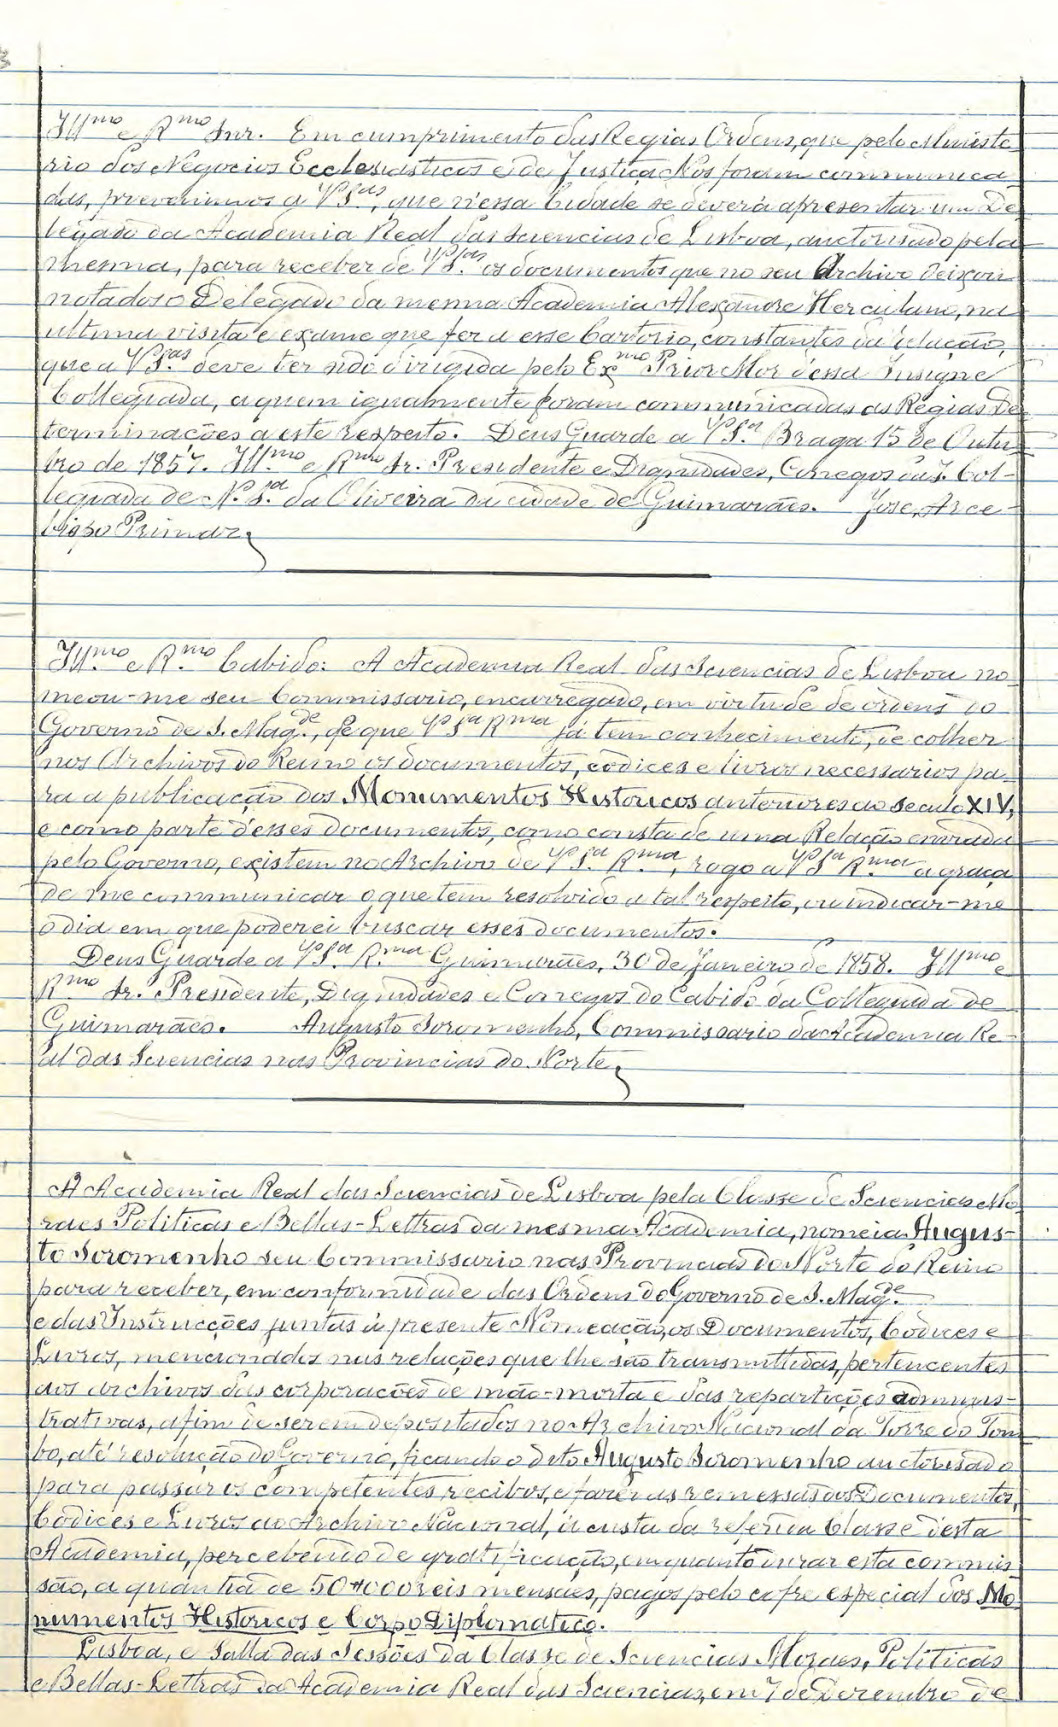 Ill.mo e R.mo Snr. Em cumprimento das Regias Ordens, que pelo Ministe
rio dos Negocios Ecclesiasticos e de Justiça Nos foram communica
das, prevenimos a V S.as, que n'essa Cidade se deverá apresentar um De
legado da Academia Real das Sciencias de Lisboa, auctorisado pela
mesma, para receber de V S.as os documentos que no seu Archivo deixou
notados o Delegado da mesma Academia Alexandre Herculano, na
ultima visita e exame que fez a esse Cartorio, constantes da relação,
que a V S.as deve ter sido dirigida pelo Ex.mo Prior Mor d'essa Insigne
Collegiada, a quem igualmente foram communicadas as Regias De
terminações a este respeito. Deus Guarde a V S.as Braga 15 de Outu
bro de 1857. Ill.mo e R.mo Sr. Presidente e Dignidades, Conegos da I. Col-
legiada de N. S.ra da Oliveira da cidade de Guimarães. José, Arce-
bispo Primaz,
Ill.mo e R.mo Cabido: A Academia Real das Sciencias de Lisboa no
meou-me seu Commissario, encarregado, em virtude de ordens do
Governo de S. Mag.de, de que V S.a R.ma já tem conhecimento, de colher
nos Archivos do Reino os documentos, codices e livros necessarios pa-
ra a publicação dos Monumentos Historicos anteriores ao seculo XIV,
e como parte d'esses documentos, como consta de uma Relação enviada
pelo Governo, existem no Archivo de V S.a R.ma, rogo a V S.a R.ma a graça
de me communicar o que tem resolvido a tal respeito, ou indicar-me
o dia em que poderei buscar esses documentos.
Deus Guarde a V S.a R.ma Guimarães, 30 de Janeiro de 1858. Ill.mo e
R.mo Sr. Presidente, Dignidades e Conegos do Cabido da Collegiada de
Guimarães. Augusto Soromenho, Commissario da Academia Re-
al das Sciencias nas Provincias do Norte,
A Academia Real das Sciencias de Lisboa pela Classe de Sciencias Mo
raes Politicas e Bellas-Lettras da mesma Academia, nomeia Augus-
to Soromenho seu Commissario nas Provincias do Norte do Reino
para receber, em conformidade das Ordens do Governo de S. Mag.de
e das Instrucções juntas á presente Nomeação, os Documentos, Codices e
Livros, mencionados nas relações que lhe são transmittidas, pertencentes
aos Archivos das corporações de mão-morta e das repartições adminis-
trativas, a fim de serem depositados no Archivo Nacional da Torre do Tom
bo, até resolução do Governo, ficando o dito Augusto Soromenho auctorisado
para passar os competentes recibos, e fazer as remessas dos Documentos,
Codices e Livros ao Archivo Nacional, á custa da referida Classe d'esta
Academia, percebendo de gratificação, em quanto durar esta commis
são, a quantia de 50#000 reis mensaes, pagos pelo cofre especial dos Mo
numentos Historicos e Corpo Diplomatico.
Lisboa, e Salla das Sessões da Classe de Sciencias Moraes, Politicas
e Bellas-Lettras da Academia Real das Sciencias, em 7 de Dezembro de